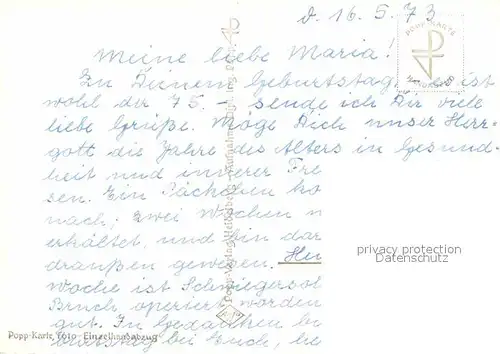 d. 16.5.73
Meine liebe Maria!
Zu Deinem Geburtstag, es ist
wohl der 75. – sende ich Dir viele
liebe Grüße. Möge Dich unser Herr-
gott die Jahre des Alters in Gesund-
heit und innerer Fre
sen. Ein Päckchen ko
nach; zwei Wochen w
erkältet, und bin dar
draußen gewesen. Heu
Woche ist Schwiegersoh
Bruch operiert worden
gut. In Gedanken bi
bei Euch, he
POPP-KARTE
Popp-Verlag Heidelberg
Popp-Karte, Foto-Einzelhandabzug
privacy protection
DATABASEFOOTPRINT